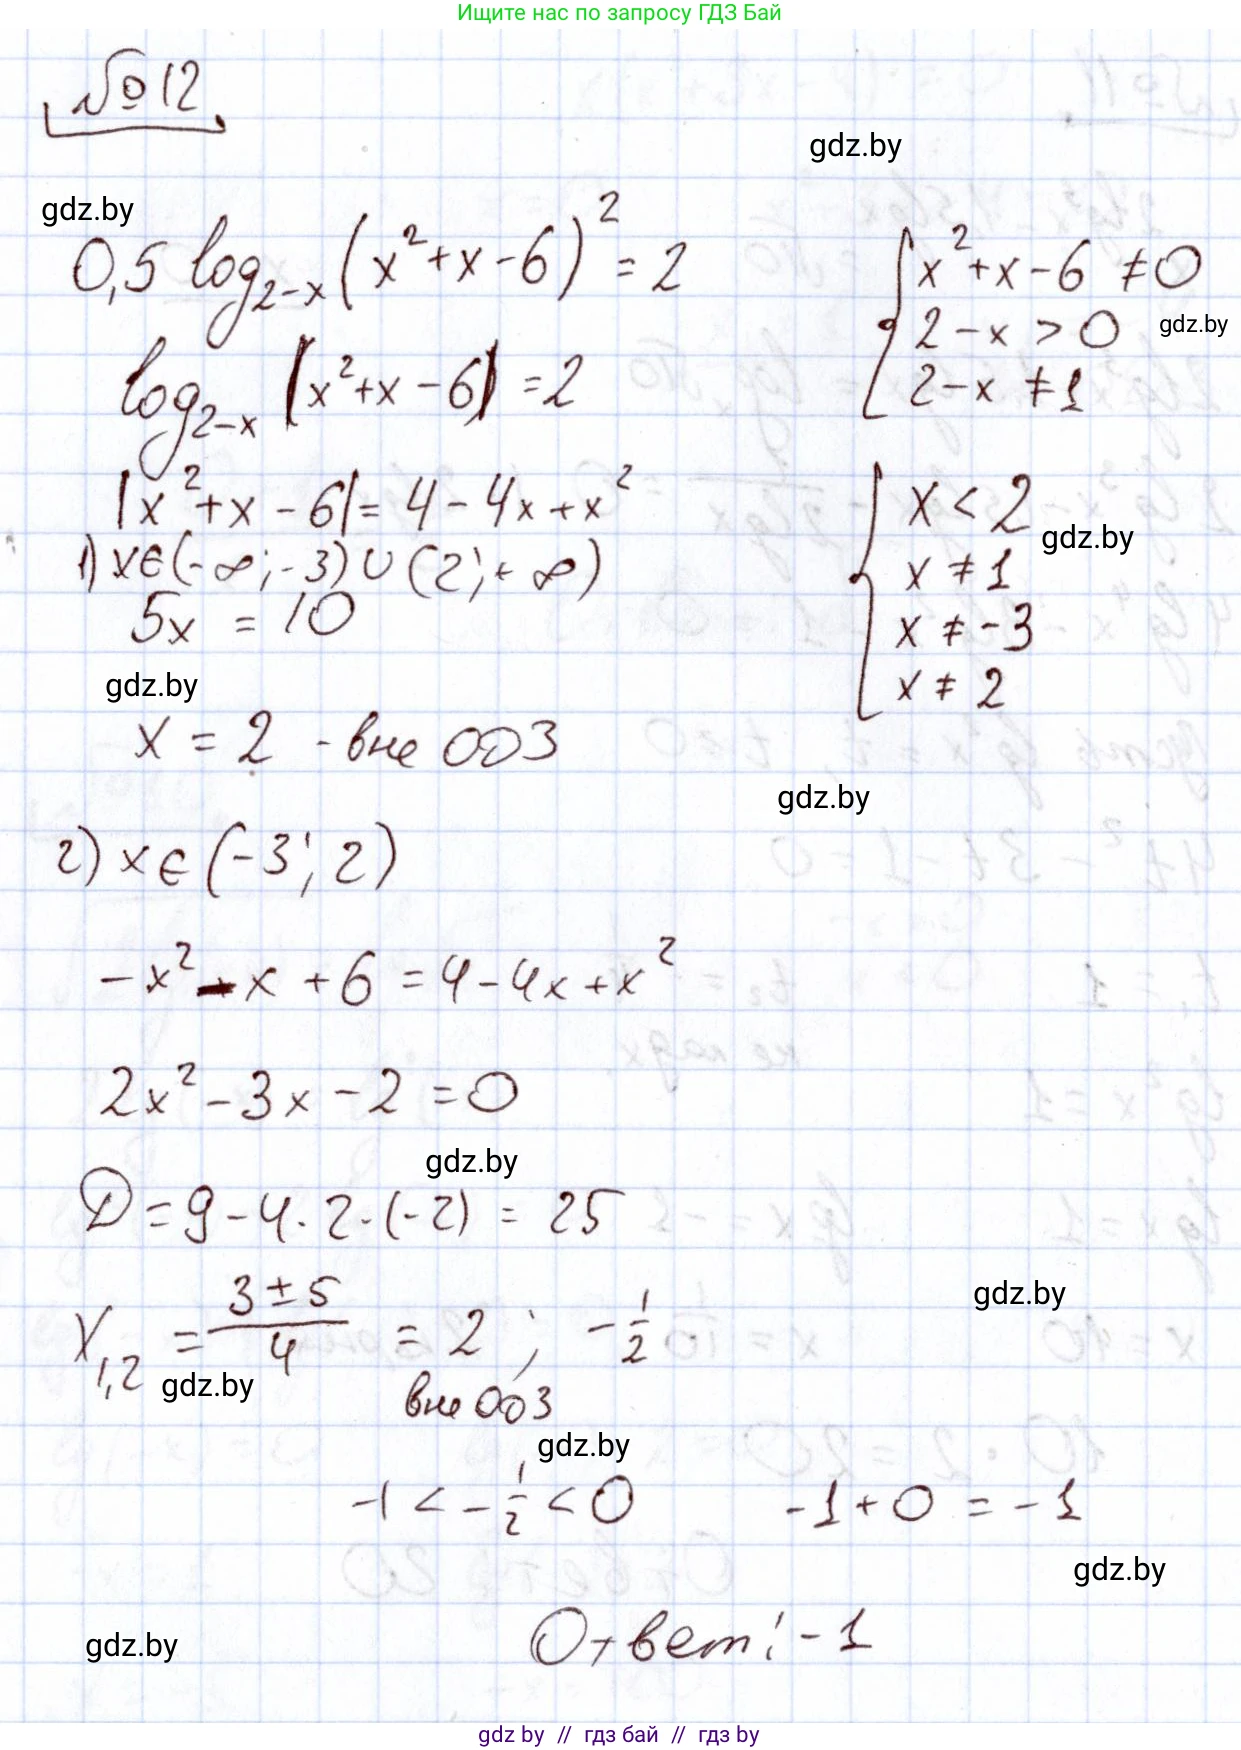 Ищите нас по запросу ГДЗ Бай
№12
gdz.by
gdz.by
0,5 log_{2-x} (x² + x - 6)² = 2
{ x² + x - 6 ≠ 0
2 - x > 0
gdz.by
2 - x ≠ 1
log_{2-x} |x² + x - 6| = 2
|x² + x - 6| = 4 - 4x + x²
{ x < 2
gdz.by
x ≠ 1
x ≠ -3
x ≠ 2
1) x ∈ (-∞; -3) ∪ (2; +∞)
5x = 10
gdz.by
x = 2 - вне ОДЗ
gdz.by
2) x ∈ (-3; 2)
-x² - x + 6 = 4 - 4x + x²
2x² - 3x - 2 = 0
gdz.by
D = 9 - 4 · 2 · (-2) = 25
gdz.by
x_{1,2} = (3 ± 5)/4 = 2 ; -1/2
gdz.by
вне ОДЗ
gdz.by
-1 < -1/2 < 0 -1 + 0 = -1
gdz.by
gdz.by
Ответ: -1
gdz by // гдз бай // гдз by